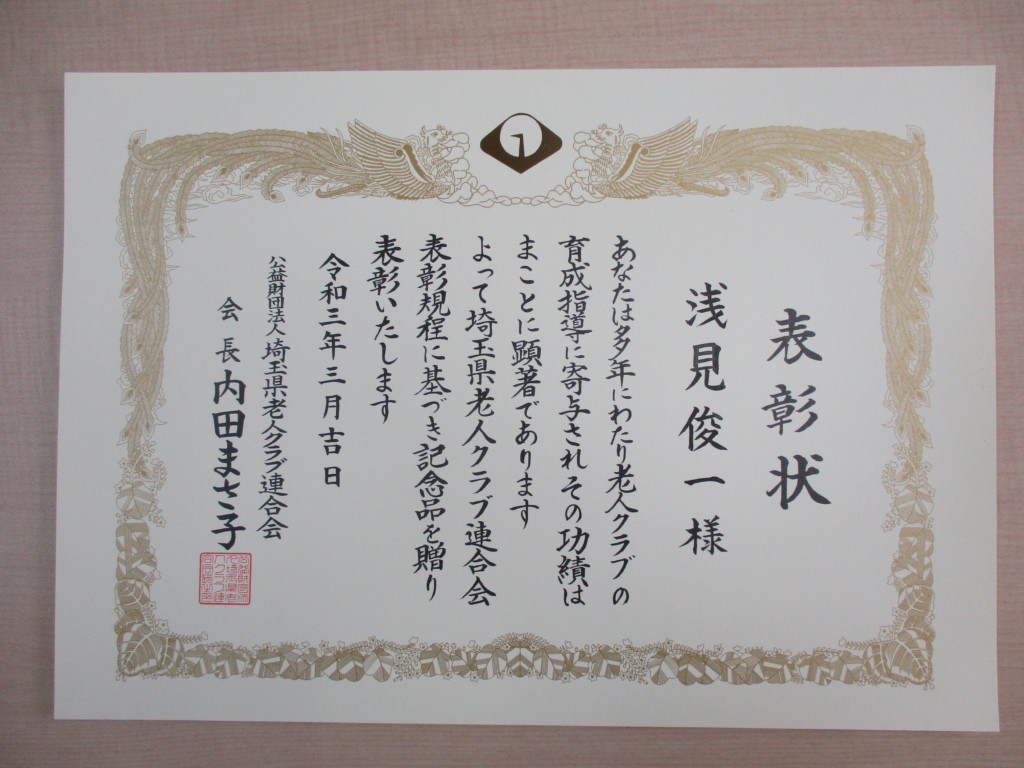 表彰状
浅見俊一様
あなたは多年にわたり老人クラブの
育成指導に寄与されその功績は
まことに顕著であります
よって埼玉県老人クラブ連合会
表彰規程に基づき記念品を贈り
表彰いたします
令和三年三月吉日
公益財団法人埼玉県老人クラブ連合会
会長内田まさ子